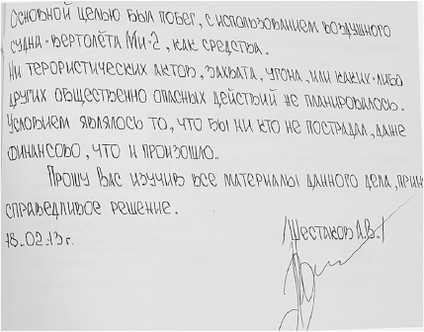 Основной целью был побег, с использованием воздушного
судна-вертолёта Ми-2, как средства.
Ни терористических актов, захвата, угона, или каких-либо
других общественно опасных действий не планировалось.
Условием являлось то, что бы ни кто не пострадал, даже
финансово, что и произошло.
Прошу Вас изучив все материалы данного дела, прин
справедливое решение.
18.02.13г.
/Шестаков А.В./